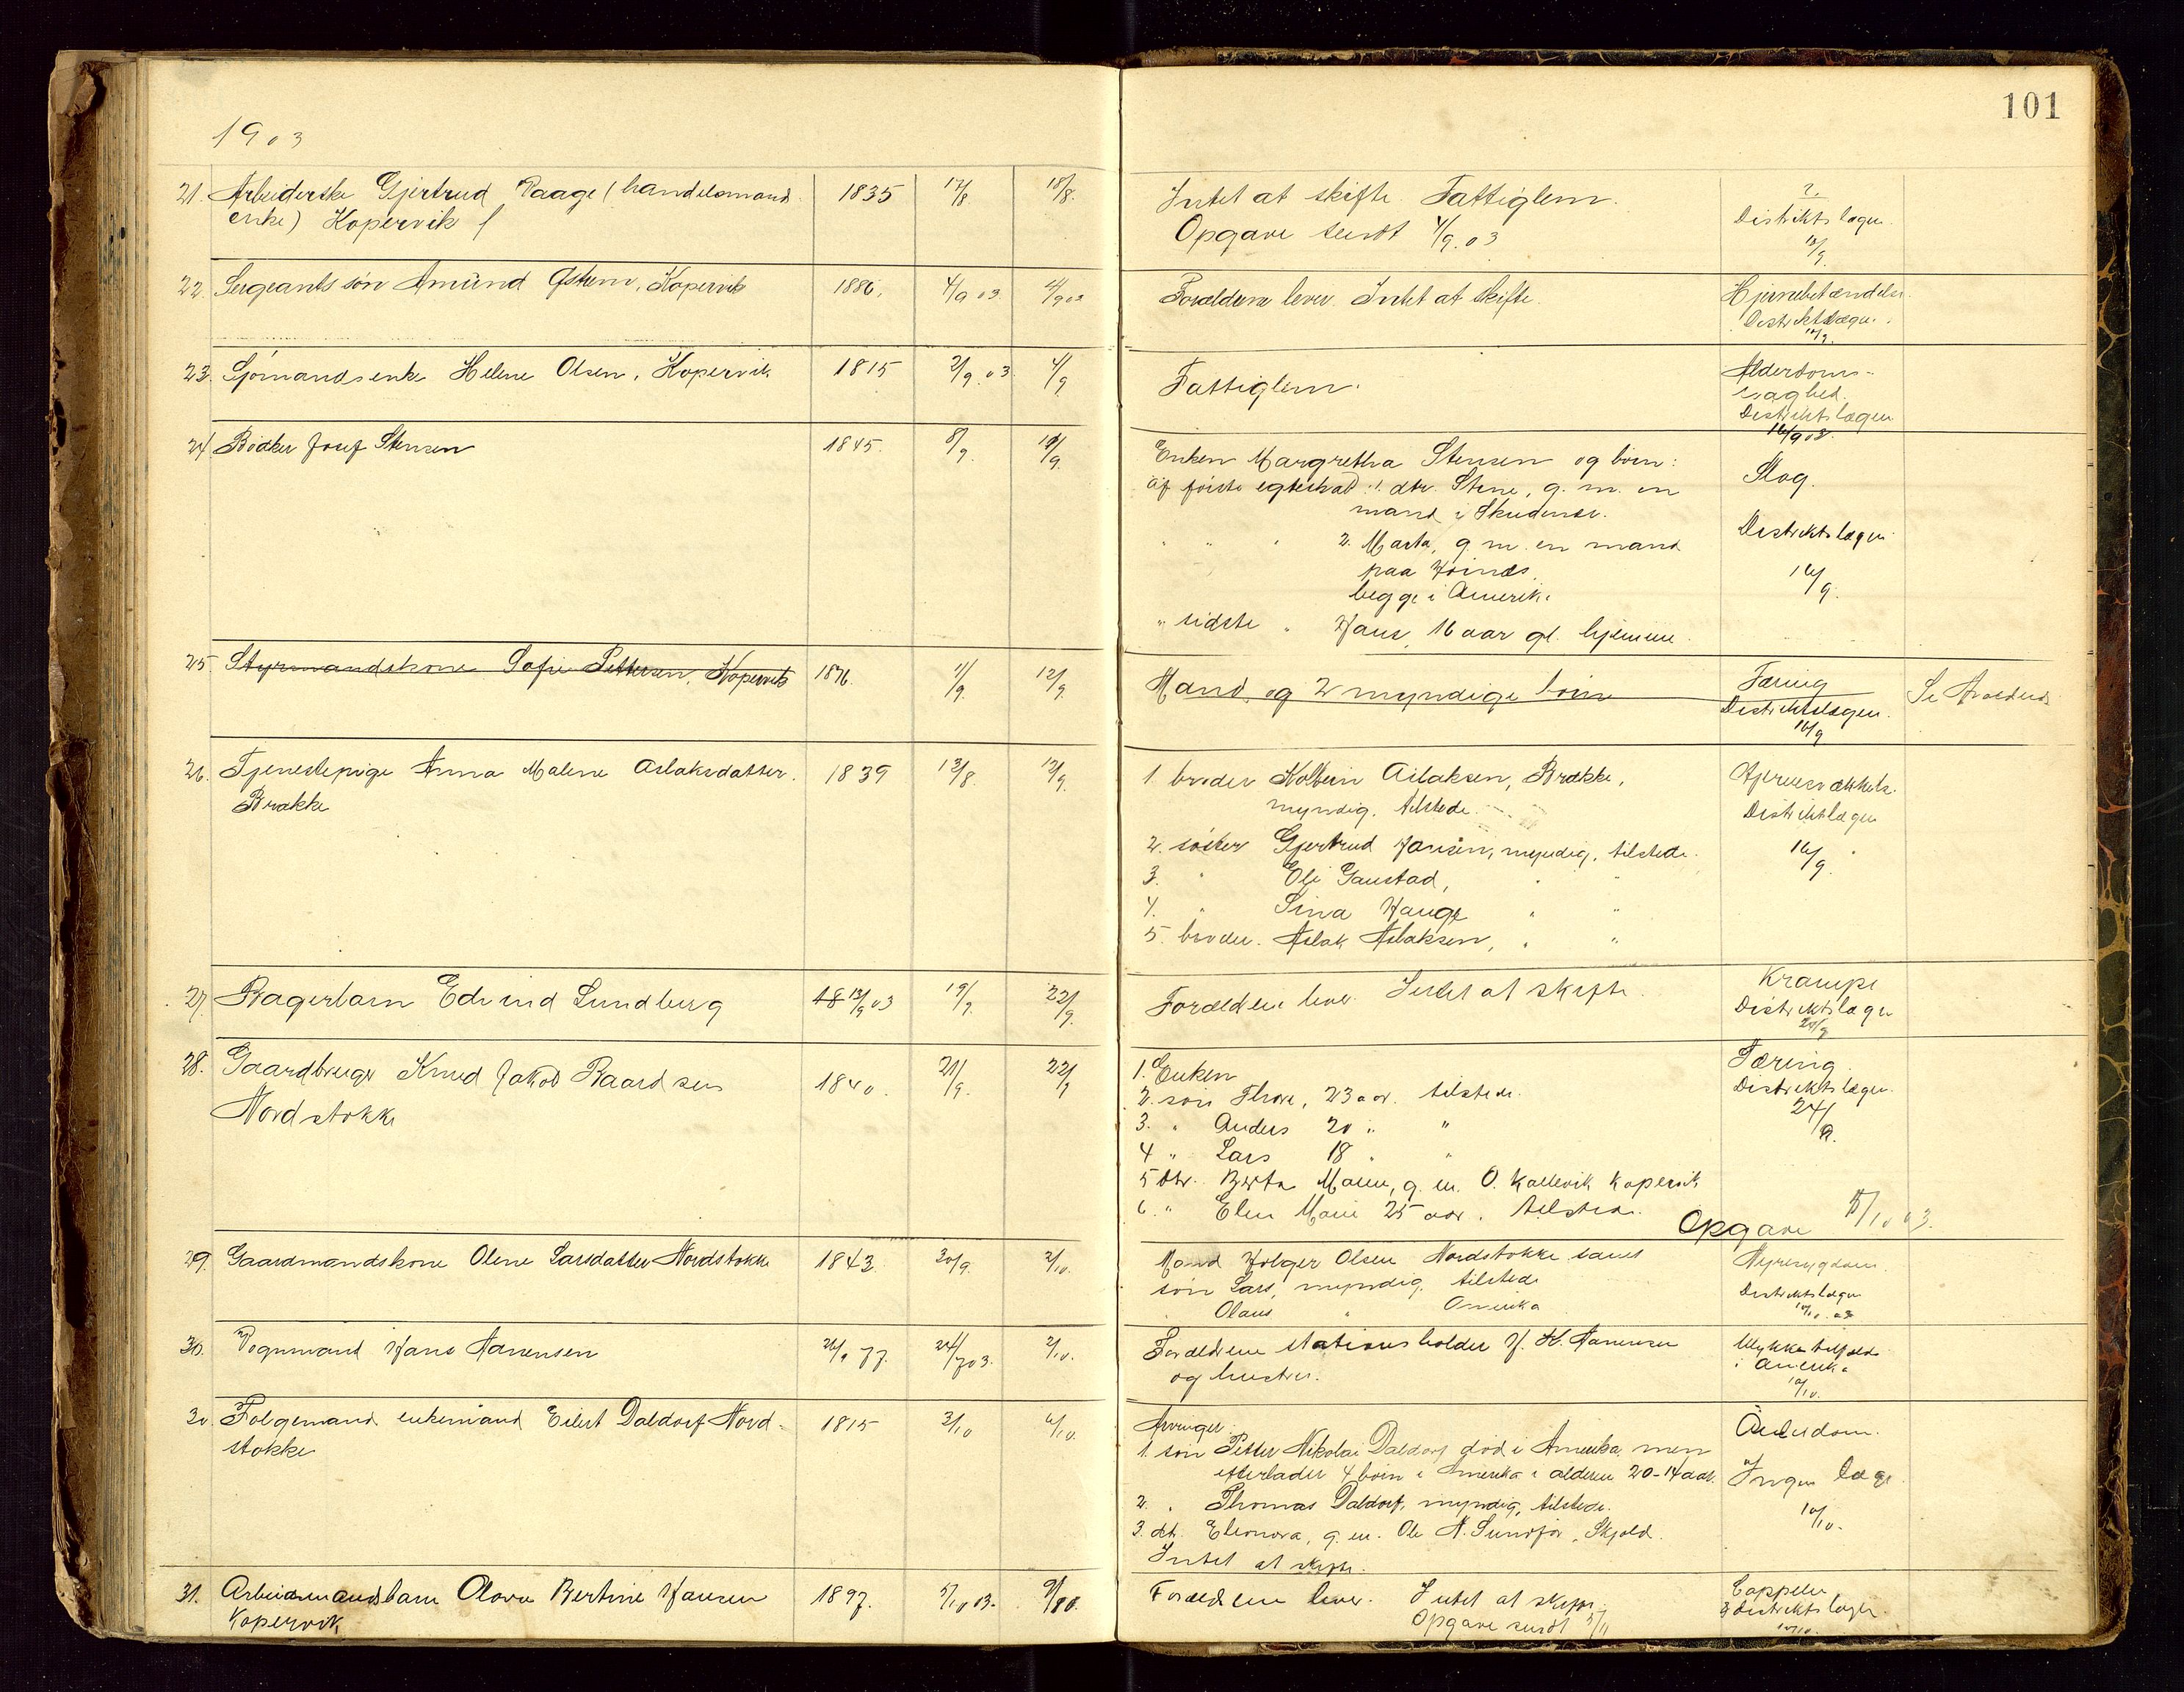 101
1903
21. Arbeiderske Gjertrud Vaage (handelsmands
enke) Kopervik
1835 17/8 18/8.
Intet at skifte. Fattiglem.
Opgave sendt 4/9.03
?.
Distriktslægen.
22. Sergeants søn Amund Østrem, Kopervik
1886. 4/9 03 4/9 03
Forældrene lever. Intet at skifte.
Hjernebetændelse.
Distriktslægen.
23. Sjømandsenke Helene Olsen, Kopervik
1815 2/9.03. 4/9
Fattiglem.
Alderdoms-
svaghed.
Distriktslægen
16/9 03.
24. Bødker Josef Stensen
1845. 8/9.
Enken Margretha Stensen og børn:
af første egteskab: 1. dtr. Stine, g. m. en
mand i Skudenes.
" " " 2. Marta, g. m. en mand
paa
begge i Amerika
" sidste " Hans, 16 aar gl. hjemme.
Slag.
Distriktslægen
16/9.
25. Styrmandskone Sofie Pettersen, Kopervik
1876. 11/9. 12/9
Mand og 2 myndige børn
Tæring
Distriktslægen.
16/9
Se
26. Tjenestepige Anna Malene Aslaksdatter.
Brække
1839 13/8. 12/9.
1. broder Kolbein Aslaksen, Brække,
myndig, tilstede.
2. søster Gjertrud Hansen, myndig, tilstede.
3. " Eli Gaustad, " "
4. " Sina Hauge " "
5. broder. Aslak Aslaksen, " "
Distriktslægen
16/9.
27. Bagerbarn Edvind Lundberg
18 13/9 03 19/9. 22/9.
Forældrene lever. Intet at skifte.
Krampe
Distriktslægen
28. Gaardbruger Knud Jakob Baardsen
Nordstokke
1840. 21/9. 22/9
1. Enken
2. søn Thore, 23 aar. tilstede.
3. " Anders 20 " "
4 " Lars 18 " "
5 dtr. Berta Malene, g. m. O. Kallevik Kopervik
6. " Elen Marie 25 aar. tilstede.
Opgave 5/10 03.
Tæring.
Distriktslægen.
24/9.
29. Gaardmandskone Olene Larsdatter Nordstokke
1843. 30/9. 2/10.
Mand Holger Olsen Nordstokke samt
søn Lars, myndig, tilstede
" Olaus " Amerika
Nyresygdom.
Distriktslægen
10/10. 03
30. Vognmand Hans Aanensen
2/10.
Forældrene stationsholder H. Aanensen
og hustru.
Ulykkestilfælde
i Amerika
10/10.
30. Folgemand enkemand Eilert Daldorf Nord-
stokke
1815 3/10 6/10.
Arvinger:
1. søn Petter Nikolai Daldorf død i Amerika, men
efterlader 4 børn i Amerika i alderen 20-14 aar.
2. " Thomas Daldorf, myndig, tilstede.
3. dtr. Eleonora, g. m. Ole N. Sundfør, Skjold.
Intet at skifte.
Ælderdom.
Ingen læge
10/10.
31. Arbeidsmandsbarn Olava Bertine Hansen
Kopervik
1897. 5/10 03.
Forældrene lever. Intet at skifte.
Opgave sendt 5/11
Distriktslægen.